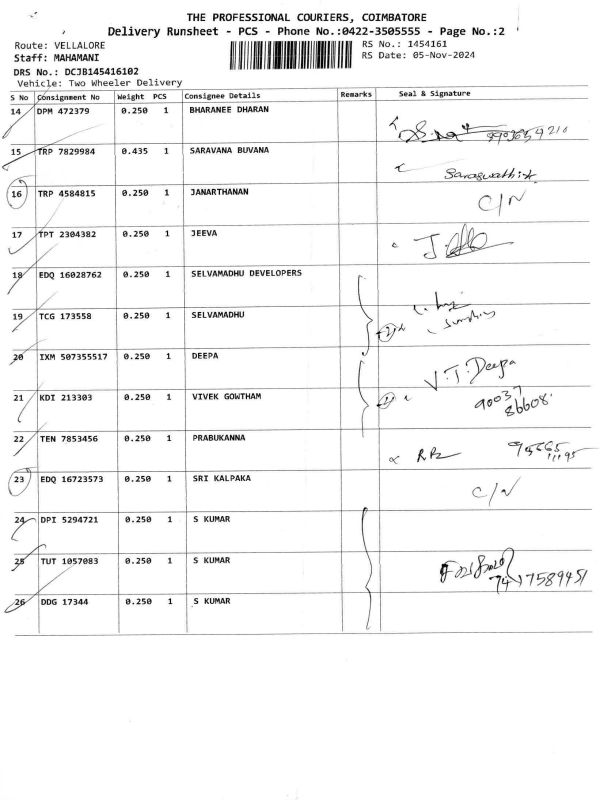 THE PROFESSIONAL COURIERS, COIMBATORE
Delivery Runsheet - PCS - Phone No.:0422-3505555 - Page No.:2
Route: VELLALORE RS No.: 1454161
Staff: MAHAMANI RS Date: 05-Nov-2024
DRS No.: DCJB145416102
Vehicle: Two Wheeler Delivery
S No Consignment No Weight PCS Consignee Details Remarks Seal & Signature
14 DPM 472379 0.250 1 BHARANEE DHARAN
15 TRP 7829984 0.435 1 SARAVANA BUVANA
16 TRP 4584815 0.250 1 JANARTHANAN C/N
17 TPT 2304382 0.250 1 JEEVA
18 EDQ 16028762 0.250 1 SELVAMADHU DEVELOPERS
19 TCG 173558 0.250 1 SELVAMADHU
20 IXM 507355517 0.250 1 DEEPA V.T.Deepa
21 KDI 213303 0.250 1 VIVEK GOWTHAM 90037
86608
22 TEN 7853456 0.250 1 PRABUKANNA
23 EDQ 16723573 0.250 1 SRI KALPAKA C/N
24 DPI 5294721 0.250 1 S KUMAR
25 TUT 1057083 0.250 1 S KUMAR 7417589451
26 DDG 17344 0.250 1 S KUMAR